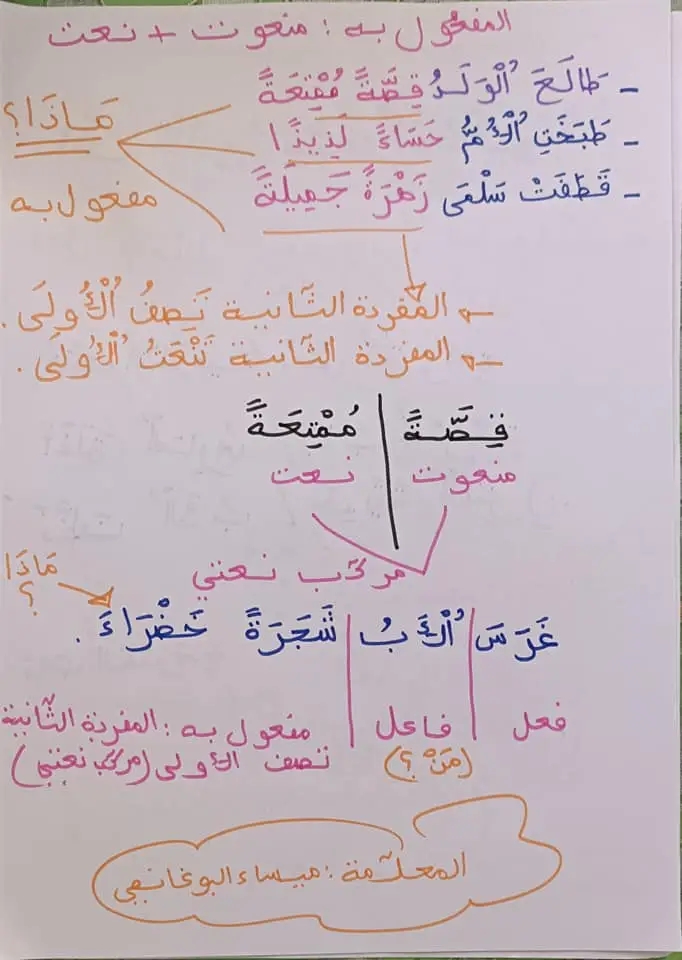 المفعول به : منعوت + نعت
- طَالَعَ ٱلْوَلَدُ قِصَّةً مُمْتِعَةً
- طَبَخَتِ ٱلْأُمُّ حَسَاءً لَذِيذًا
- قَطَفَتْ سَلْمَى زَهْرَةً جَمِيلَةً
مَاذَا؟
مفعول به
← المفردة الثّانية تَصِفُ ٱلْأُولَى.
← المفردة الثّانية تَنْعَتُ ٱلْأُولَى.
قِصَّةً | مُمْتِعَةً
منعوت نعت
مركّب نعتي
مَاذَا
؟
غَرَسَ | ٱلْأَبُ | شَجَرَةً خَضْرَاءَ.
فعل | فاعل | مفعول به : المفردة الثّانية
(مَنْ؟) تصف الأولى (مركّب نعتي)
المعلّمة : ميساء البوغانمي